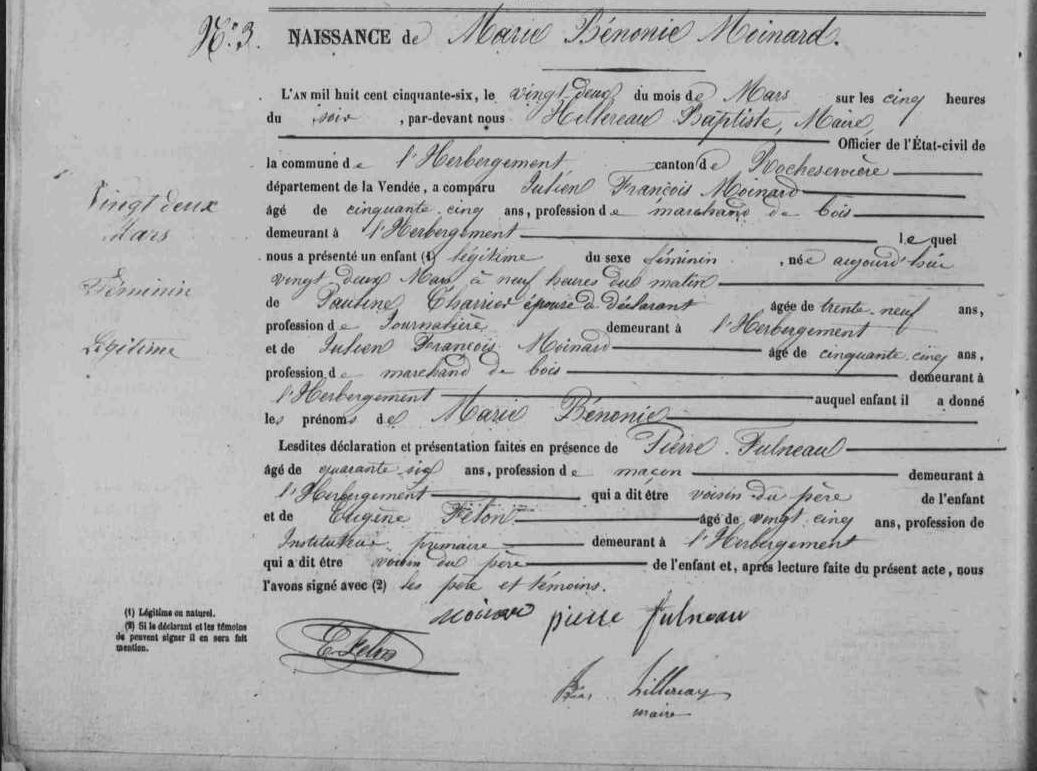 N°. 3. NAISSANCE de Marie Bénonie Moinard.
L'AN mil huit cent cinquante-six, le vingt-deux du mois de Mars sur les cinq heures
du soir, par-devant nous Hillereau Baptiste, Maire,
Officier de l'État-civil de
la commune de l'Herbergement canton de Rocheservière
département de la Vendée, a comparu Julien François Moinard
âgé de cinquante-cinq ans, profession de marchand de bois
demeurant à l'Herbergement lequel
nous a présenté un enfant (1) légitime du sexe féminin, née aujourd'hui
vingt deux Mars à neuf heures du matin
de Pauline Charrier épouse d déclarant âgée de trente-neuf ans,
profession de Journalière demeurant à l'Herbergement
et de Julien François Moinard âgé de cinquante-cinq ans,
profession de marchand de bois demeurant à
l'Herbergement auquel enfant il a donné
les prénoms de Marie Bénonie
Lesdites déclaration et présentation faites en présence de Pierre Fulneau
âgé de quarante-six ans, profession de maçon demeurant à
l'Herbergement qui a dit être voisin du père de l'enfant
et de Eugène Félon âgé de vingt-cinq ans, profession de
Instituteur primaire demeurant à l'Herbergement
qui a dit être voisin du père de l'enfant et, après lecture faite du présent acte, nous
l'avons signé avec (2) les père et témoins.
Vingt deux
Mars
Féminin
Légitime
(1) Légitime ou naturel.
(2) Si le déclarant et les témoins
ne peuvent signer il en sera fait
mention.
moinard pierre fulneau
E Felon
Hillereau
maire